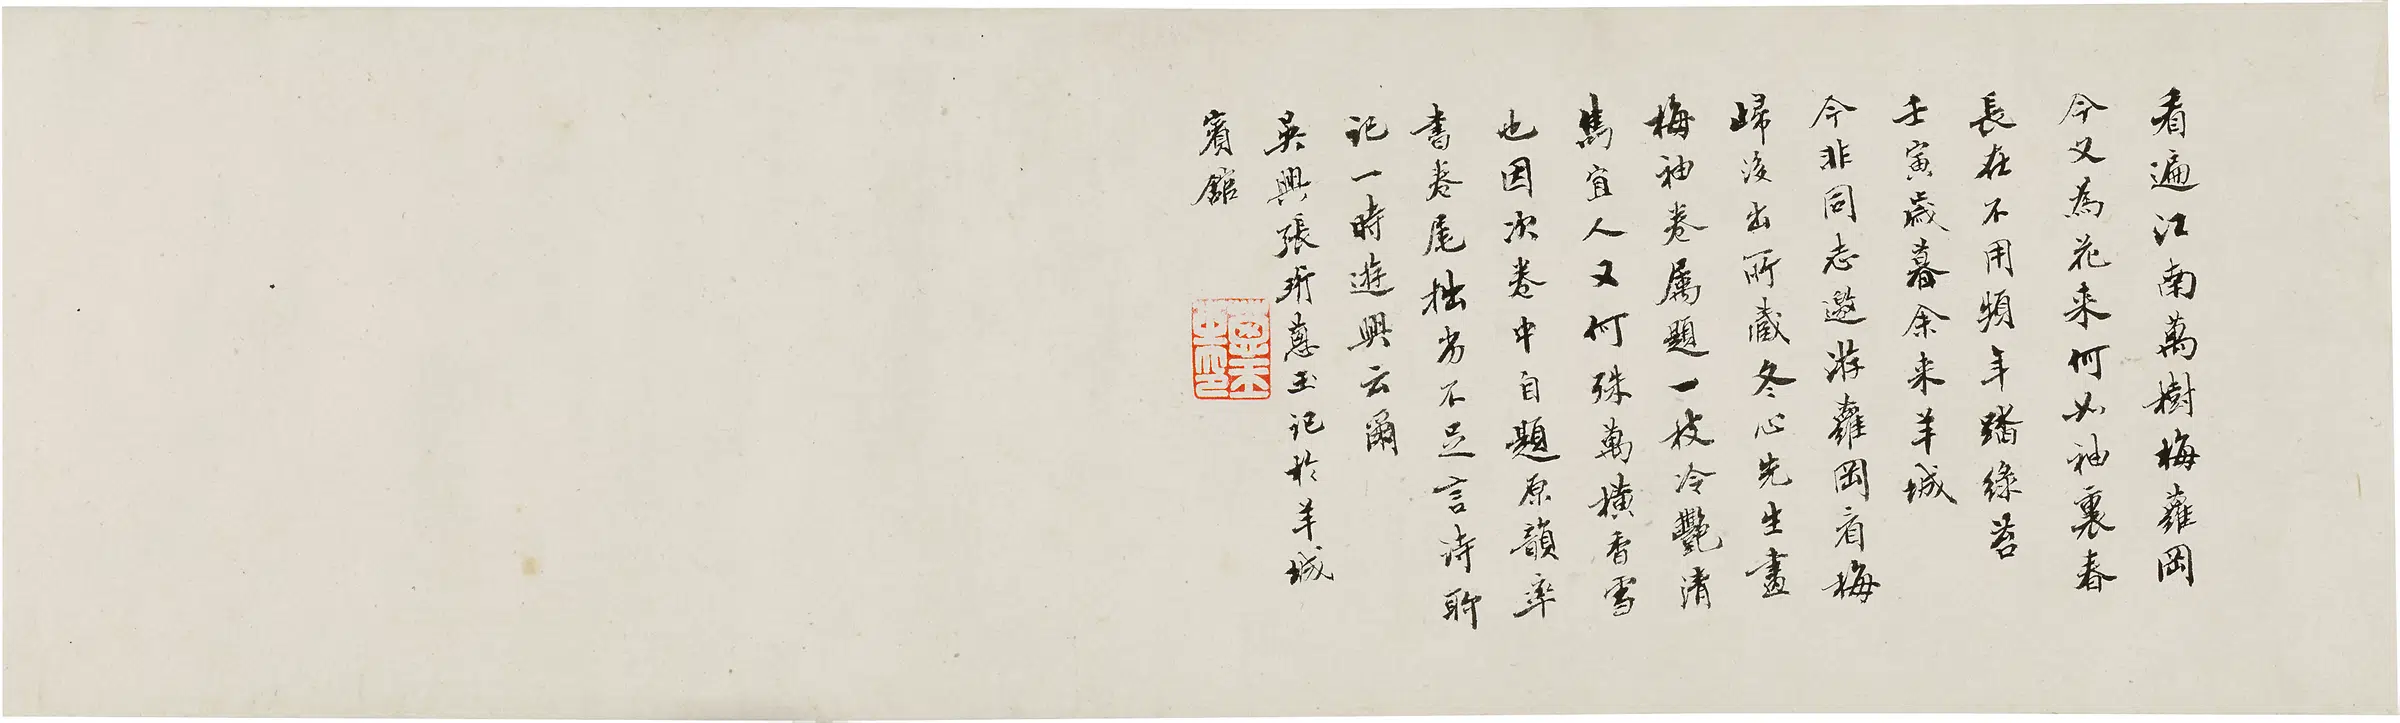 看遍江南萬樹梅蘿岡
今又為花来何如袖裏春
長在不用頻年踏綠苔
壬寅歲暮余来羊城
今非同志邀游蘿岡看梅
歸後出所藏冬心先生畫
梅袖卷属題一枝冷艷清
雋宜人又何殊萬橫香雪
也因次卷中自題原韻率
書卷尾拙劣不足言诗聊
記一時遊興云爾
吳興張珩蔥玉記於羊城
賓館